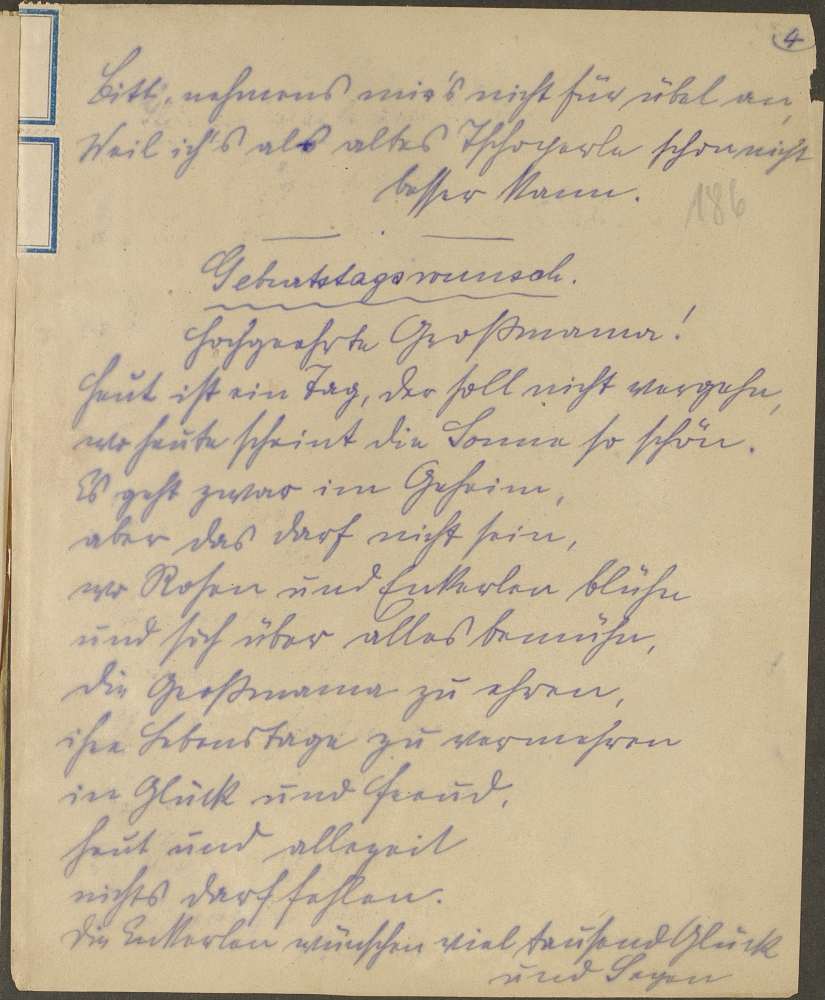 4
Bitt, nehmens mir's nicht für übel an,
Weil ich's als altes Tschoperle schon nicht
besser kann.
186
Geburtstagswunsch.
Hochgeehrte Großmama!
Heut ist ein Tag, der soll nicht vergehn,
wo heute scheint die Sonne so schön.
Es geht zwar im Geheim,
aber das darf nicht sein,
wo Rosen und Enkerlen blühn
und sich über alles bemühn,
die Großmama zu ehren,
ihre Lebenstage zu vermehren
in Glück und Freud,
heut und allezeit
nichts darf fehlen.
Die Enkerlen wünschen viel tausend Glück
und Segen